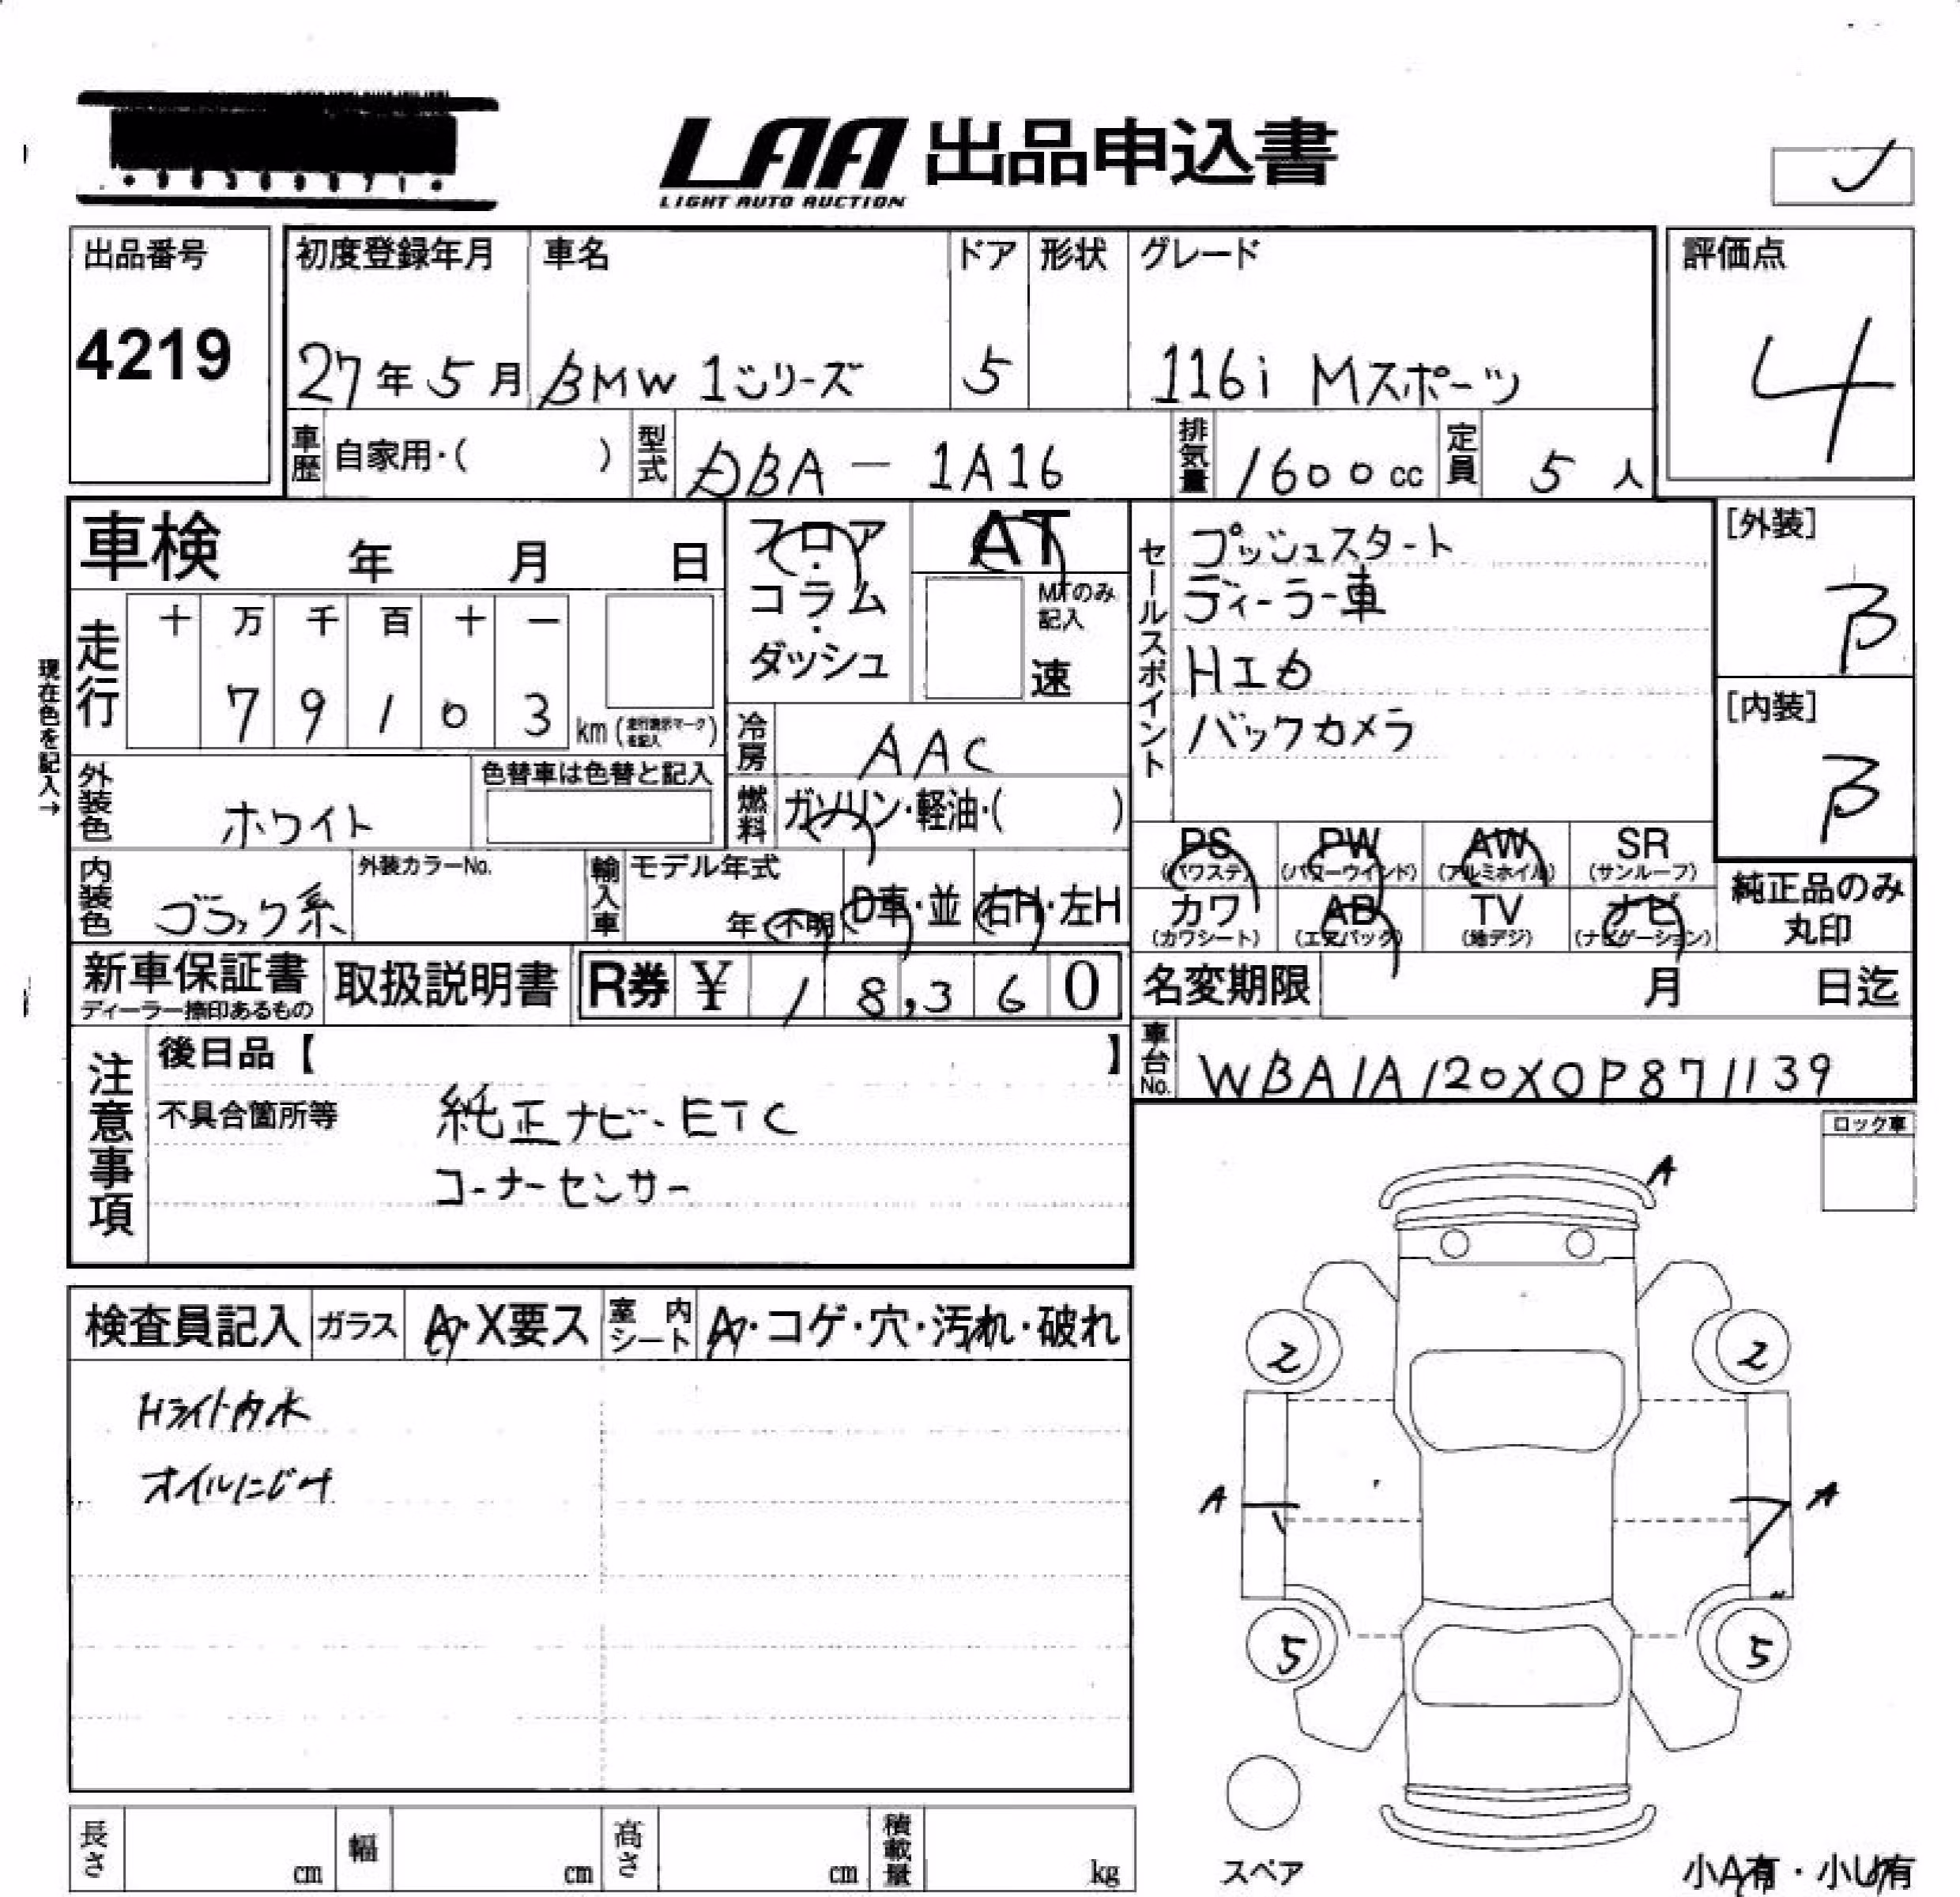 LAA 出品申込書
LIGHT AUTO AUCTION
出品番号
4219
初度登録年月
27年5月
車名
BMW 1シリーズ
ドア
5
形状
グレード
116i Mスポーツ
評価点
4
車歴 自家用・( )
型式 DBA－1A16
排気量 1600cc
定員 5人
車検 年 月 日
フロア・コラム・ダッシュ
AT
MTのみ記入
速
セールスポイント
プッシュスタート
ディーラー車
HID
バックカメラ
[外装]
B
[内装]
B
現在色を記入→
走行
十 万 千 百 十 一
7 9 1 0 3 km (走行表示マークを記入)
冷房 AAC
外装色 ホワイト
色替車は色替と記入
燃料 ガソリン・軽油・( )
PS (パワステ)
PW (パワーウインド)
AW (アルミホイル)
SR (サンルーフ)
カワ (カワシート)
AB (エアバック)
TV (地デジ)
ナビ (ナビゲーション)
純正品のみ丸印
内装色 ブラック系
外装カラーNo.
輸入車
モデル年式
年・不明
D車・並
右H・左H
新車保証書
ディーラー捺印あるもの
取扱説明書
R券 ¥ 18,360
名変期限 月 日迄
車台No. WBA1A120X0P871139
注意事項
後日品【 】
不具合箇所等
純正ナビ・ETC
コーナーセンサー
ロック車
検査員記入
ガラス A・X要ス
室内シート A・コゲ・穴・汚れ・破れ
Hライト内水
オイルにじみ
A
2 2
A A
5 5
スペア
小A有・小U有
長さ cm
幅 cm
高さ cm
積載量 kg